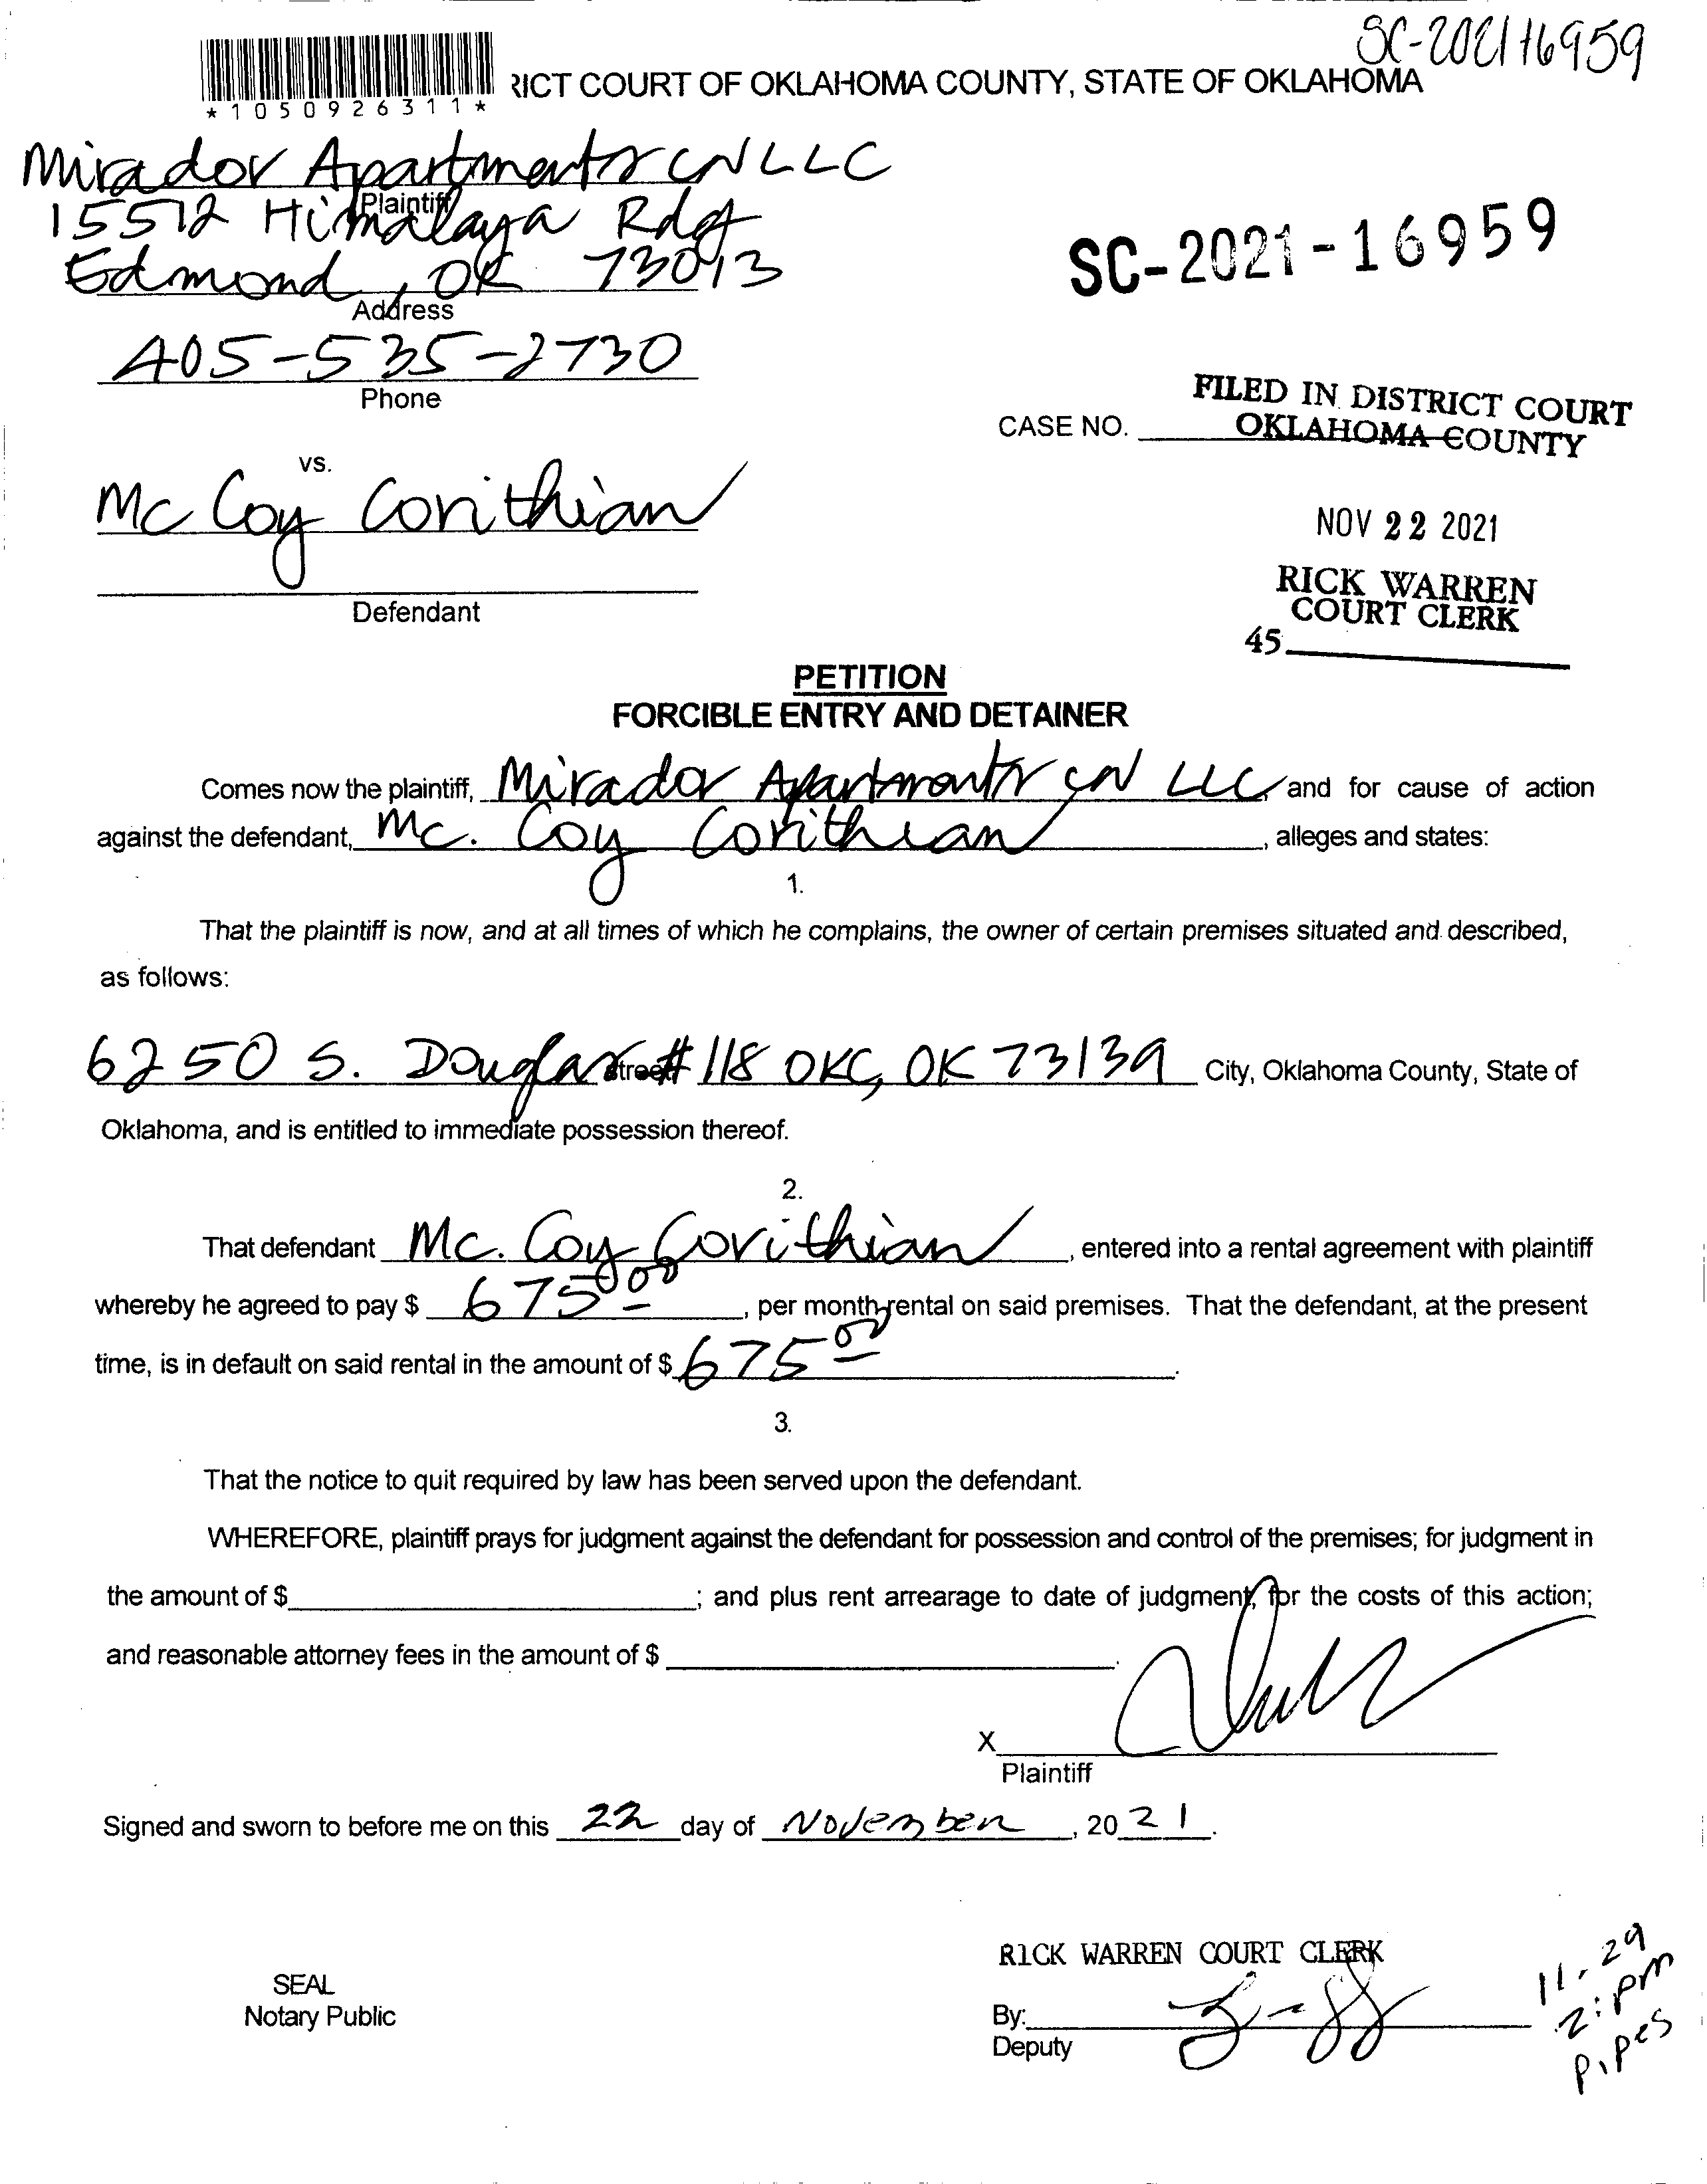 SC-2021 16959
RICT COURT OF OKLAHOMA COUNTY, STATE OF OKLAHOMA
*1050926311*
Mirador Apartments CN LLC
Plaintiff
15512 Himalaya Rdg
Edmond, OK 73013
Address
SC-2021-16959
405-535-2730
Phone
FILED IN DISTRICT COURT
CASE NO. OKLAHOMA COUNTY
vs.
Mc Coy Corithian
NOV 22 2021
Defendant
RICK WARREN
COURT CLERK
45
PETITION
FORCIBLE ENTRY AND DETAINER
Comes now the plaintiff, Mirador Apartments CN LLC, and for cause of action
against the defendant, Mc. Coy Corithian, alleges and states:
1.
That the plaintiff is now, and at all times of which he complains, the owner of certain premises situated and described,
as follows:
6250 S. Douglas Street #118 OKC, OK 73139 City, Oklahoma County, State of
Oklahoma, and is entitled to immediate possession thereof.
2.
That defendant Mc. Coy Corithian, entered into a rental agreement with plaintiff
whereby he agreed to pay $ 675 00, per month rental on said premises. That the defendant, at the present
time, is in default on said rental in the amount of $ 675 00.
3.
That the notice to quit required by law has been served upon the defendant.
WHEREFORE, plaintiff prays for judgment against the defendant for possession and control of the premises; for judgment in
the amount of $ ; and plus rent arrearage to date of judgment, for the costs of this action;
and reasonable attorney fees in the amount of $ .
X
Plaintiff
Signed and sworn to before me on this 22 day of November, 2021.
RICK WARREN COURT CLERK
SEAL
Notary Public
By:
Deputy
11.29
2:pm
Pipes